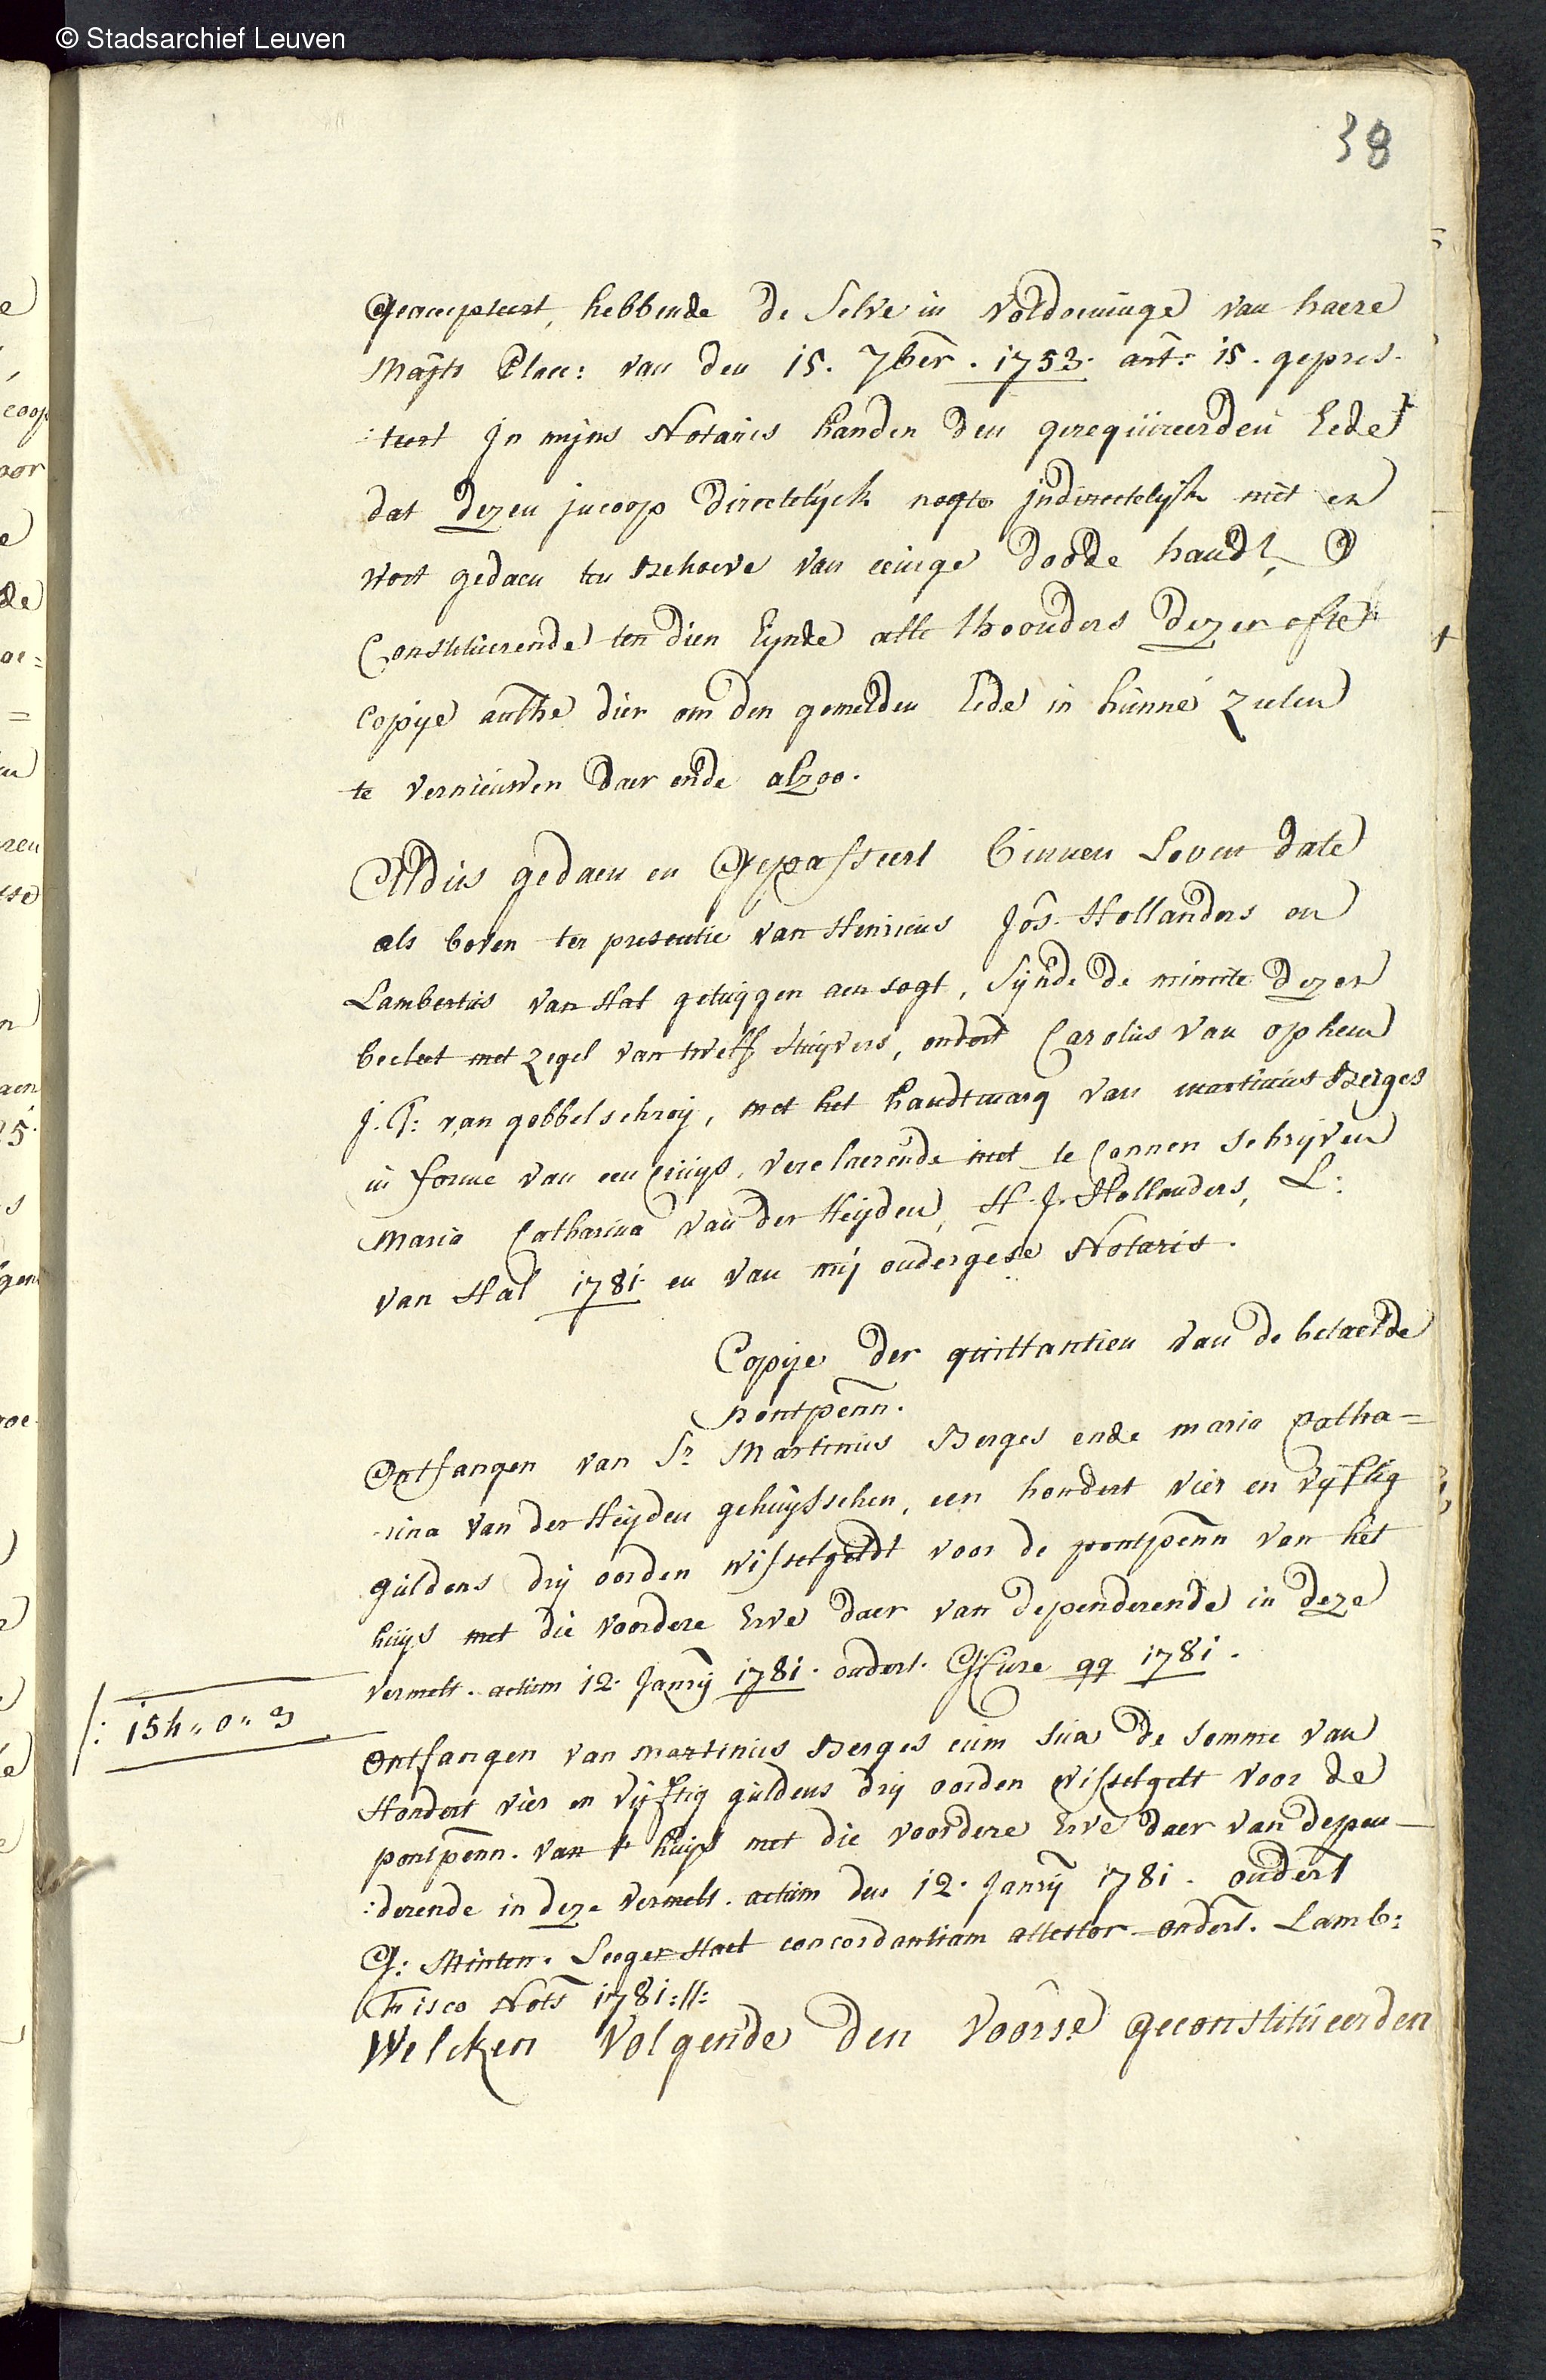 © Stadsarchief Leuven
38
Geaccepteert, hebbende de Selve in voldoeninge van haere
Maÿts Placc: van den 15. 7ber. 1753. art: 15. gepres-
:teert Jn mijns Notaris handen den gerequireerden Eede
dat dezen jncoop directelijck nogte jndirectelijk niet en
wort gedaen ten Behoeve van eenige doode handt,
Constituerende ten dien Eynde alle thoonders dezer ofte
Copije authe dier om den gemelden Eede in hunne zielen
te vernieuwen daer ende alzoo.
Aldus gedaen en Gepasseert binnen Loven date
als boven ter presentie van Henricus Jos. Hollanders en
Lambertus van Hal getuijgen aensogt, Sijnde de minute dezer
becleet met zegel van twelf stuijvers, ondert Carolus van ophem
J. G: van gobbelschroij, met het handtmarq van martinus Berges
in forme van een cruijs, verclaerende niet te connen schrijven
Maria Catharina van der Heijden, H. J. Hollanders, L:
van Hal 1781 en van mij ondergese Notaris.
Copije der quittantien van de betaelde
pontpenn.
Ontfangen van Sr. Martinus Berges ende maria catha=
-rina van der Heijden gehuijsschen, een hondert vier en vijftig
guldens drij oorden wisselgeldt voor de pontpenn van het
huijs met die voordere Erve daer van dependerende in deze
vermelt. actum 12. Janrij 1781. ondert. qq 1781.
/: 154 „ 0 „ 3
ontfangen van martinus Berges cum sua de somme van
Hondert vier en vijftig guldens drij oorden wisselgelt voor de
pontpenn. van t huijs met die voordere Erve daer van depen-
:derende in deze vermelt. actum den 12. Janrij 1781. ondert
G: Minten. Leeger Stact concordantiam attestor ondert. Lamb:
Frisco Nots 1781://:
Welcken volgende den voors.e geconstitueerden